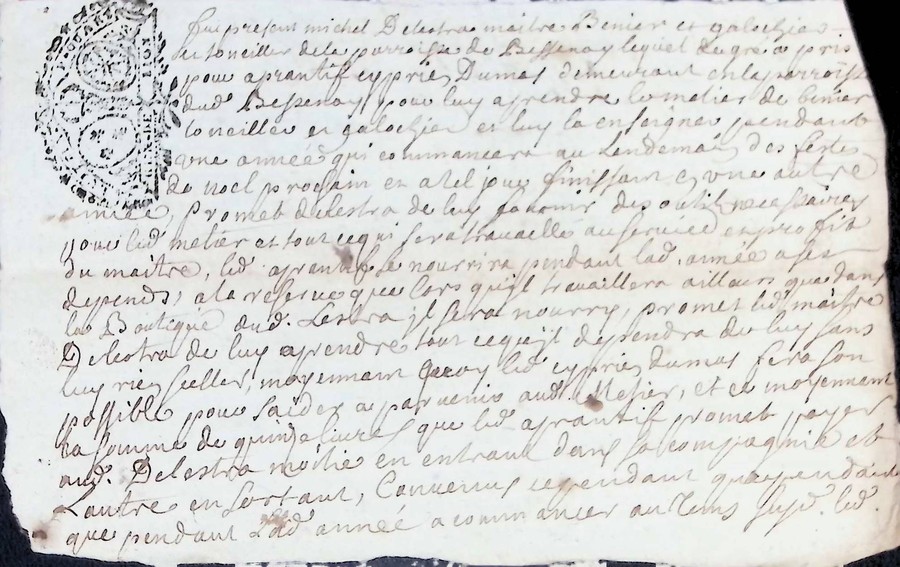 Fut present michel Delestra maitre Benier et galochier
et toneiller de la parroisse de Bessenay lequel de gré a pris
pour aprantif cyprien Dumas demeurant en la parroisse
dud. Bessenay, pour luy aprendre le metier de benier
toneillé et galochier et luy la enseigner pendant
une année qui commancera au lendemain des festes
de noel prochain et a tel jour finissant en une autre
année, promet delestra de luy fournir des outils necessaires
pour led. metier et tout ce qui sera travaillé au service et profit
du maitre, led. aprantif se nourrira pendant lad. année a ses
depends, a la reserve que lors qu'il travaillera ailleurs que dans
la Boutique dud. Lestra il sera nourry, promet led. maitre
Delestra de luy aprendre tout ce qu'il dependra de luy sans
luy rien celler, moyennant quoy led. cyprien Dumas fera son
possible pour saider a parvenir aud. Metier, et ce moyennant
la somme de quinze livres que led. aprantif promet payer
aud. Delestra moitié en entrant dans sa compagnie et
L'autre en sortant, Convenus cependant que pendant
que pendant Lad. année a commancer au Tems susd. led.